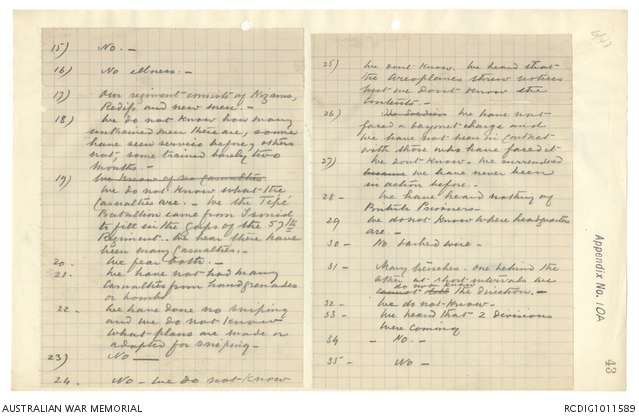 15) No. -
16) No illness. -
17) Our regiment consists of Nizams,
Redifs and new men. -
18) We do not know how many
untrained men there are, some
have seen service before, others
not, some trained barely two
months. -
19) We know of no casualties
We do not know what the
Casualties are. - We the Tepe
Battalion came from Ismid
to fill in the gaps of the 57th
Regiment. We hear there have
been many Casualties. -
20. We fear both. -
21. We have not had many
Casualties from handgrenades
or bombs
22. We have done no sniping
and we do not know
what plans are made or
adopted for sniping -
23) No -
24. No - We do not know
25) We dont know. We heard that
the Aeroplanes threw notices
but we dont know the
Contents. -
26) We have not
faced a bayonet charge and
we have not been in contact
with those who have faced it
27) We dont know. We surrendered
because we have never been
in action before. -
28 - We have heard nothing of
British Prisoners -
29 We do not know where headquarters
are. -
30 - No barbed wire. -
31 - Many trenches. one behind the
other at short intervals we
do not know
cannot the direction. -
32 - We do not know. -
33 - We heard that 2 divisions
were coming
34 - No. -
35 - No -
Appendix No. 10A
43
AUSTRALIAN WAR MEMORIAL
RCDIG1011589